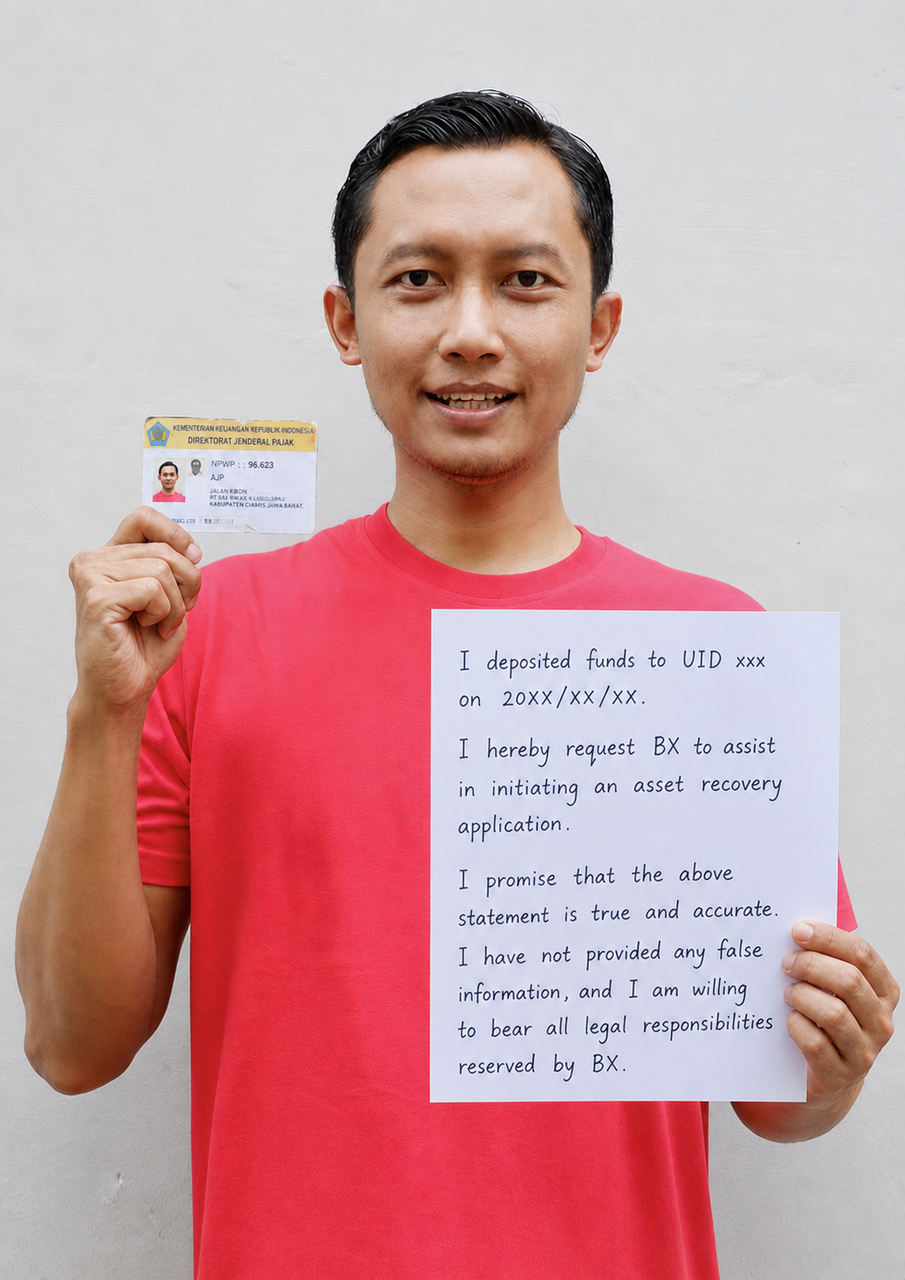 KEMENTERIAN KEUANGAN REPUBLIK INDONESIA
DIREKTORAT JENDERAL PAJAK
NPWP : : 96.623
AJP
JALAN EBON
KABUPATEN CIAMIS JAWA BARAT.
I deposited funds to UID xxx
on 20XX/XX/XX.
I hereby request BX to assist
in initiating an asset recovery
application.
I promise that the above
statement is true and accurate.
I have not provided any false
information, and I am willing
to bear all legal responsibilities
reserved by BX.